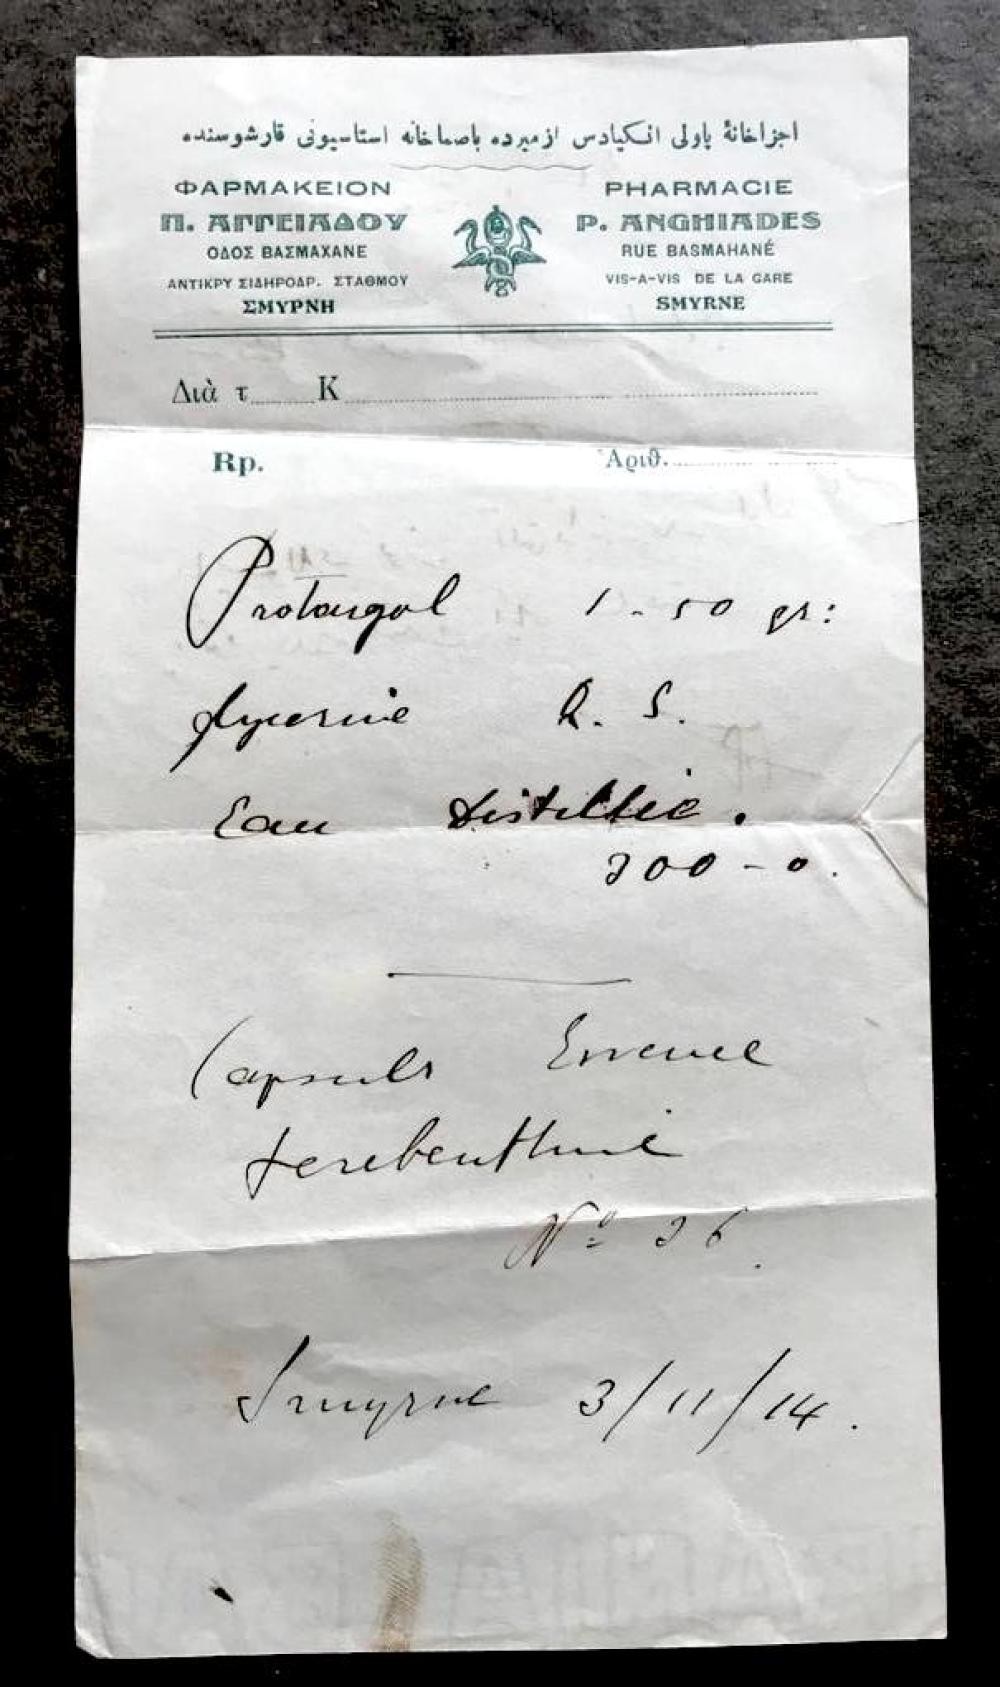 اجزاخانهٔ پاولی انکیادس ازمیرده باصماخانه استاسیونی قارشوسنده
ΦΑΡΜΑΚΕΙΟΝ
Π. ΑΓΓΕΙΑΔΟΥ
ΟΔΟΣ ΒΑΣΜΑΧΑΝΕ
ΑΝΤΙΚΡΥ ΣΙΔΗΡΟΔΡ. ΣΤΑΘΜΟΥ
ΣΜΥΡΝΗ
PHARMACIE
P. ANGHIADES
RUE BASMAHANÉ
VIS-A-VIS DE LA GARE
SMYRNE
Διὰ τ......Κ......
Rp. Ἀριθ.......
Protargol 1 - 50 gr:
Glycerine Q. S.
Eau distillée.
300 - 0.
Capsuls Essence
terebenthine
Nº 36.
Smyrne 3/11/14.